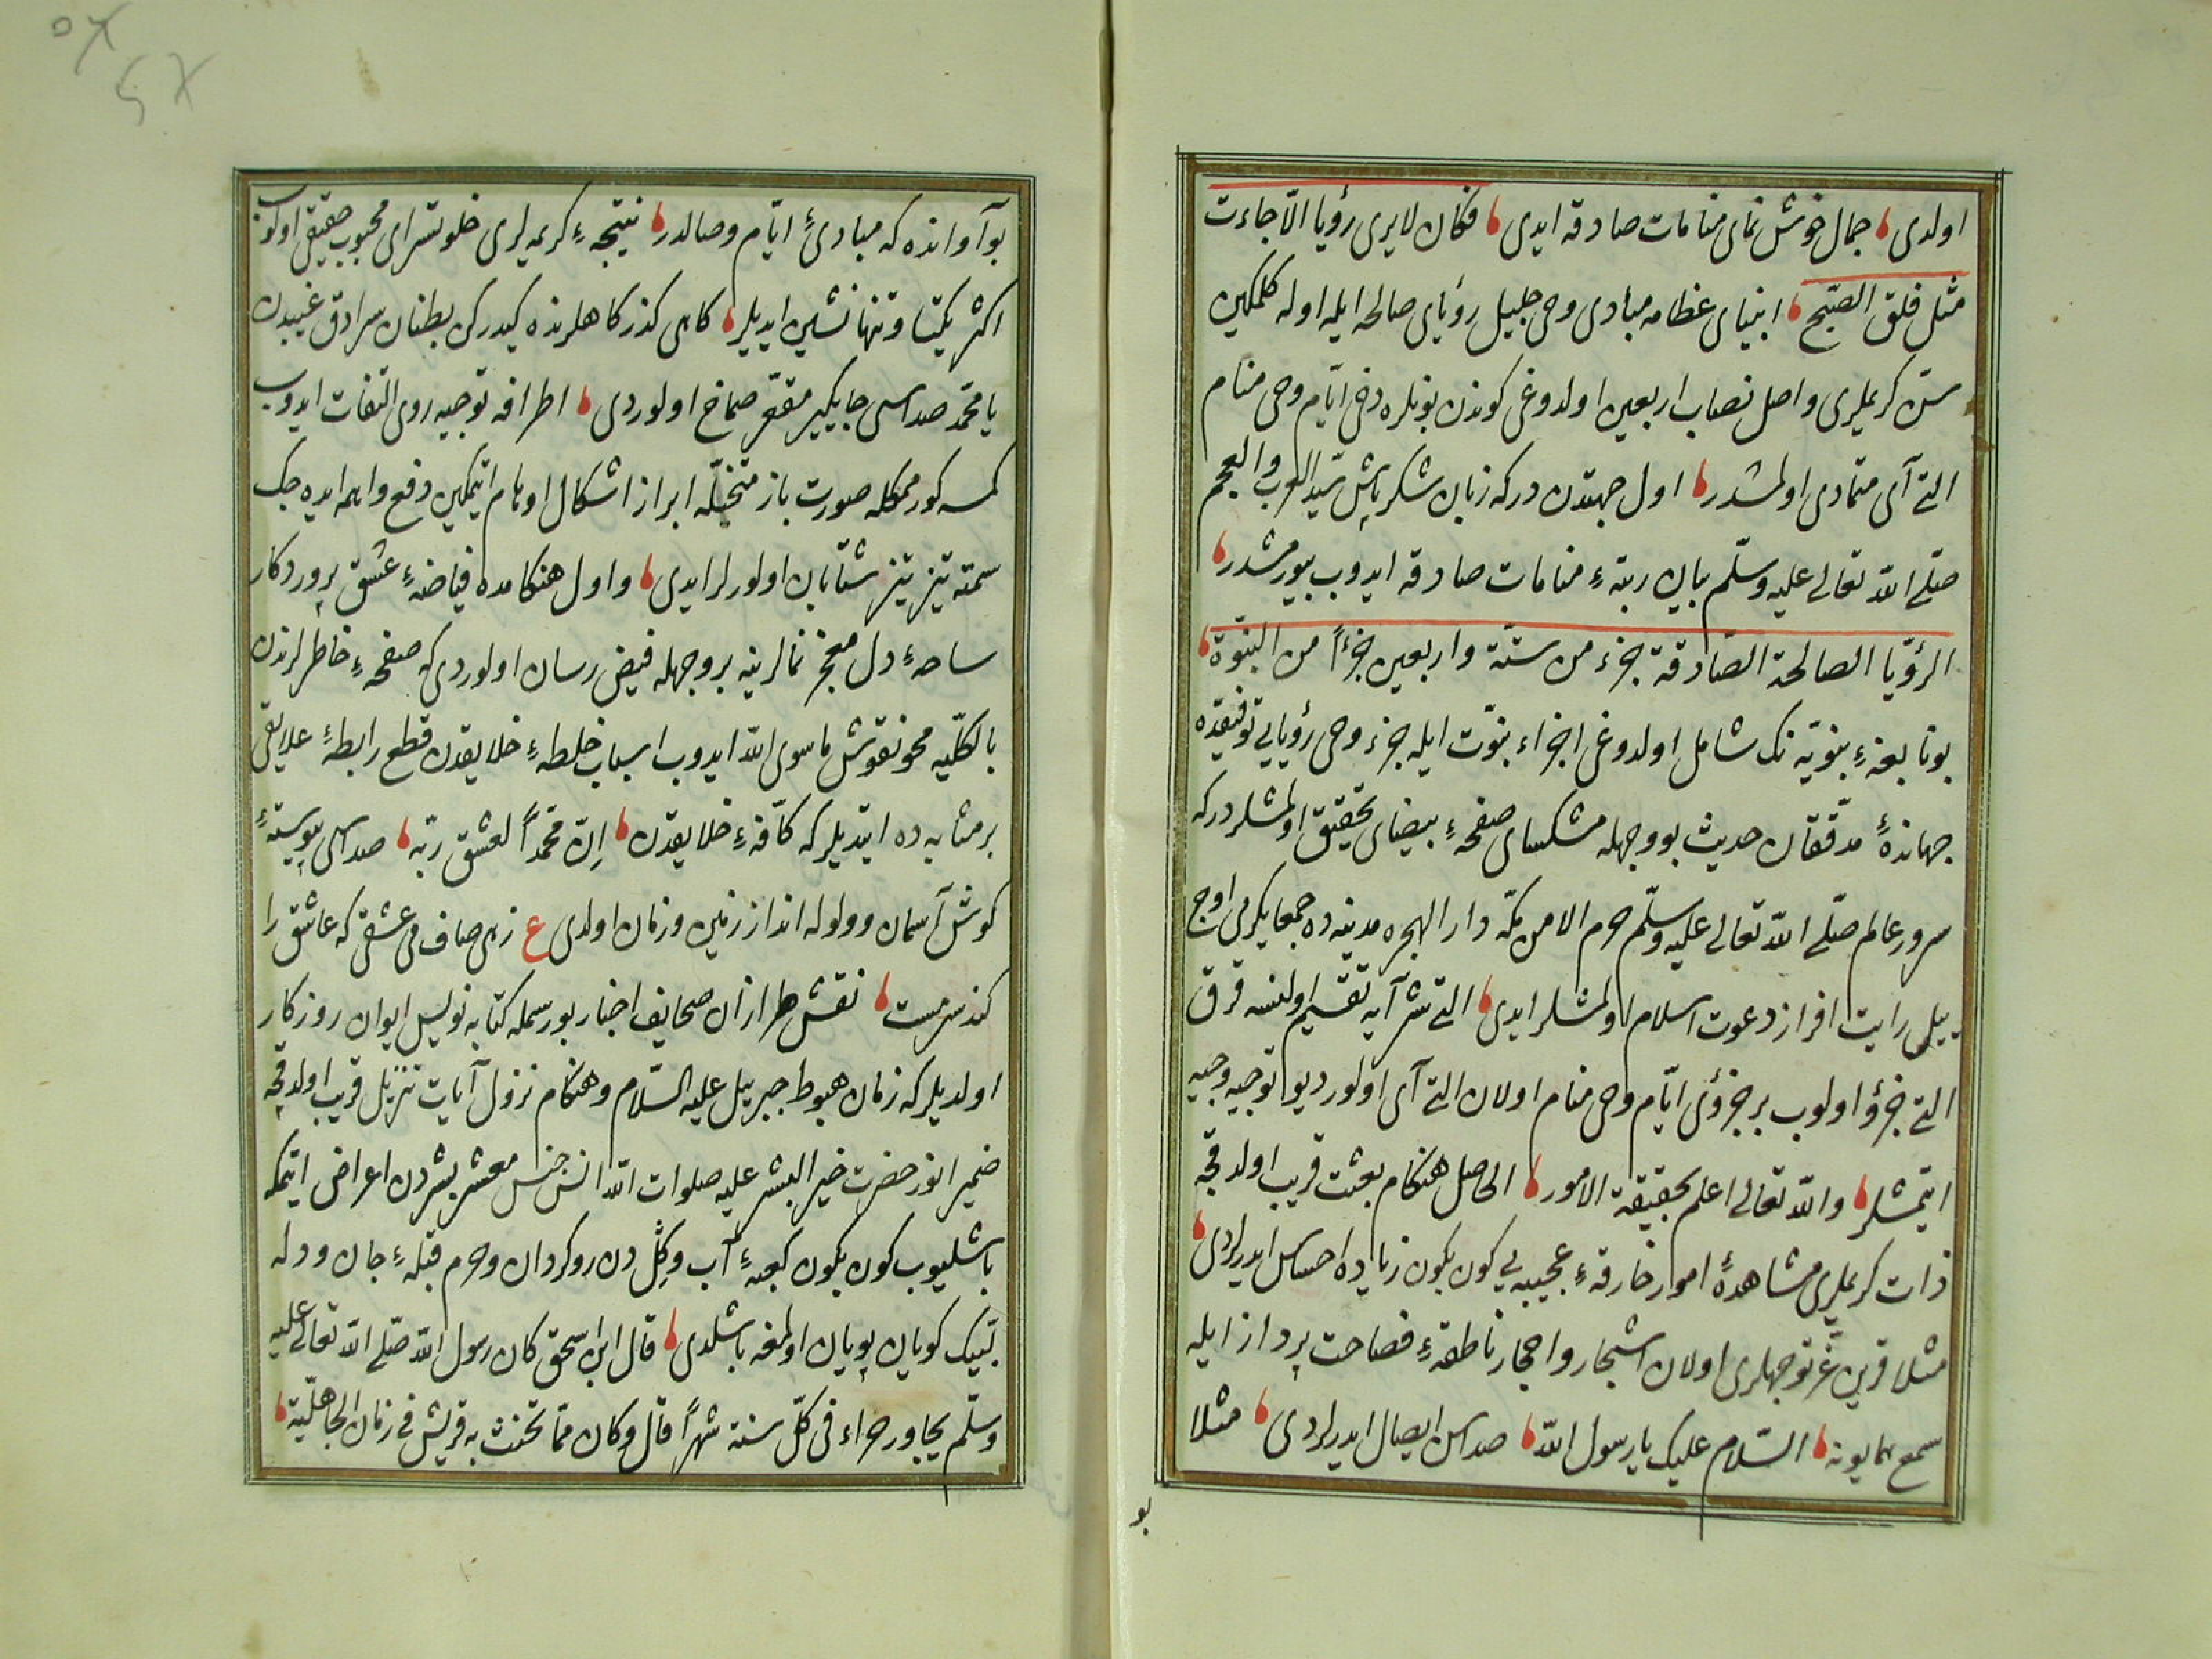 اولدی ، جمال خوش نمای منامات صادقه ایدی ، فكان لا یری رؤیا الّا جاءت
مثل فلق الصّبح ، انبیای عظامه مبادی وحی جلیل رؤیای صالحه ایله اوله كلمكین
سنّ كریملری واصل نصاب اربعین اولدوغی كوندن بونلره دخی ایّام وحی منام
التی آی متمادی اولمشدر ، اول جهتدن در كه زبان شكر پاش سیّد العرب والعجم
صلّی الله تعالی علیه وسلّم بیان رتبهٴ منامات صادقه ایدوب بیورمشدر ،
الرؤیا الصالحة الصّادقة جزء من ستّة واربعین جزءاً من النبوّة ،
بو نابغهٴ نبویّه نك شامل اولدوغی اجزاء نبوّت ایله جزء وحی رؤیایی توفیقده
جهابذهٴ مدقّقان حدیث بو وجهله مشكسای صفحهٴ بیضای تحقیق اولمشلردر كه
سرور عالم صلّی الله تعالی علیه وسلّم حرم الامن مكّه دار الهجره مدینه ده جمعا یكرمی اوچ
ییل رایت افراز دعوت اسلام اولمشلر ایدی ، التی شر آیه تقسیم اولنسه قرق
التی جزؤ اولوب بر جزؤی ایّام وحی منام اولان التی آی اولور دیو توجیه وجیه
ایتمشلر ، والله تعالی اعلم بحقیقة الامور ، الحاصل هنكام بعثت قریب اولدقجه
ذات كریملری مشاهدهٴ امور خارقهٴ عجیبه یی كون بكون زیاده احساس ایدرلردی ،
مثلا قرین غرّ توجهلری اولان اشجار واحجار ناطقهٴ فصاحت پرداز ایله
سمع همایونه ، السّلام علیك یا رسول الله ، صداسن ایصال ایدرلردی ، مثلا
بو
بو آوانده كه مبادیٴ ایّام وصالدر ، نتیجهٴ كریمه لری خلوتسرای محبوب حقیقی اولوب
اكثر یكتا وتنها نشین ایدیلر ، كاهی كذركاهلرنده كیدركن بطنان سرادق غیبدن
یا محمّد صداسی جایكیر مقعّر صماخ اولوردی ، اطرافه توجیه روی التفات ایدوب
كمسه كورممكله صورت باز متخیّله ابراز اشكال اوهام ایتمكین دفع واهمه ایده جك
سمته تیز تیز شتابان اولورلر ایدی ، واول هنكامده فیاضهٴ عشق پروردكار
ساحهٴ دل معجز نمالرینه بر وجهله فیض رسان اولوردی كه صفحهٴ خاطرلرندن
بالكلّیه محو نقوش ما سوی الله ایدوب اسباب خلطهٴ خلایقدن قطع رابطهٴ علایق
بر مثابه ده ایتدیلر كه كافّهٴ خلایقدن ، انّ محمّداً لعشق ربّه ، صداسی پیوستهٴ
كوش آسمان وولوله انداز زمین وزمان اولدی ع زهی صاف می عشقی كه عاشق را
كند سرمست ، نقش طرازان صحایف اخبار بو رسمله كتابه نویس ایوان روزكار
اولدیلر كه زمان هبوط جبریل علیه السّلام وهنكام نزول آیات تنزیل قریب اولدقجه
ضمیر انور حضرت خیر البشر علیه صلوات الله انس جنس معشر بشردن اعراض ایتمكه
باشلیوب كون بكون كعبهٴ آب وكِل دن روكردان وحرم قبلهٴ جان ودله
لبّیك كویان پویان اولمغه باشلدی ، قال ابن اسحق كان رسول الله صلّی الله تعالی علیه
وسلّم یجاور حراء فی كلّ سنة شهراً قال وكان ممّا تحنث به قریش فی زمان الجاهلّیة ،